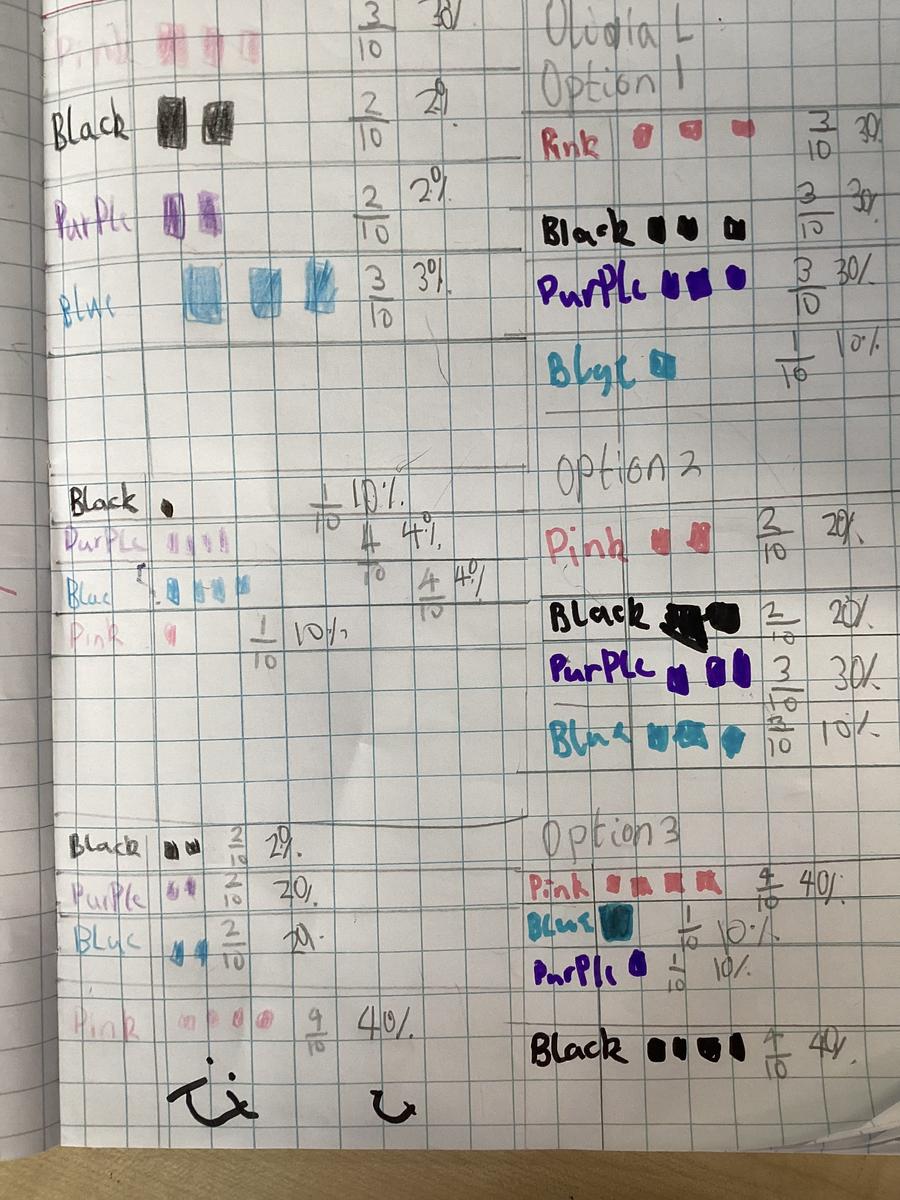 Pink 3/10 30%
Black 2/10 20%
Purple 2/10 20%
Blue 3/10 30%
Black 1/10 10%
Purple 4/10 40%
Blue 4/10 40%
Pink 1/10 10%
Black 2/10 20%
Purple 2/10 20%
Blue 2/10 20%
Pink 4/10 40%
Olidia L
Option 1
Pink 3/10 30%
Black 3/10 30%
Purple 3/10 30%
Blue 1/10 10%
Option 2
Pink 2/10 20%
Black 2/10 20%
Purple 3/10 30%
Blue 3/10 10%
Option 3
Pink 4/10 40%
Blue 1/10 10%
Purple 1/10 10%
Black 4/10 40%